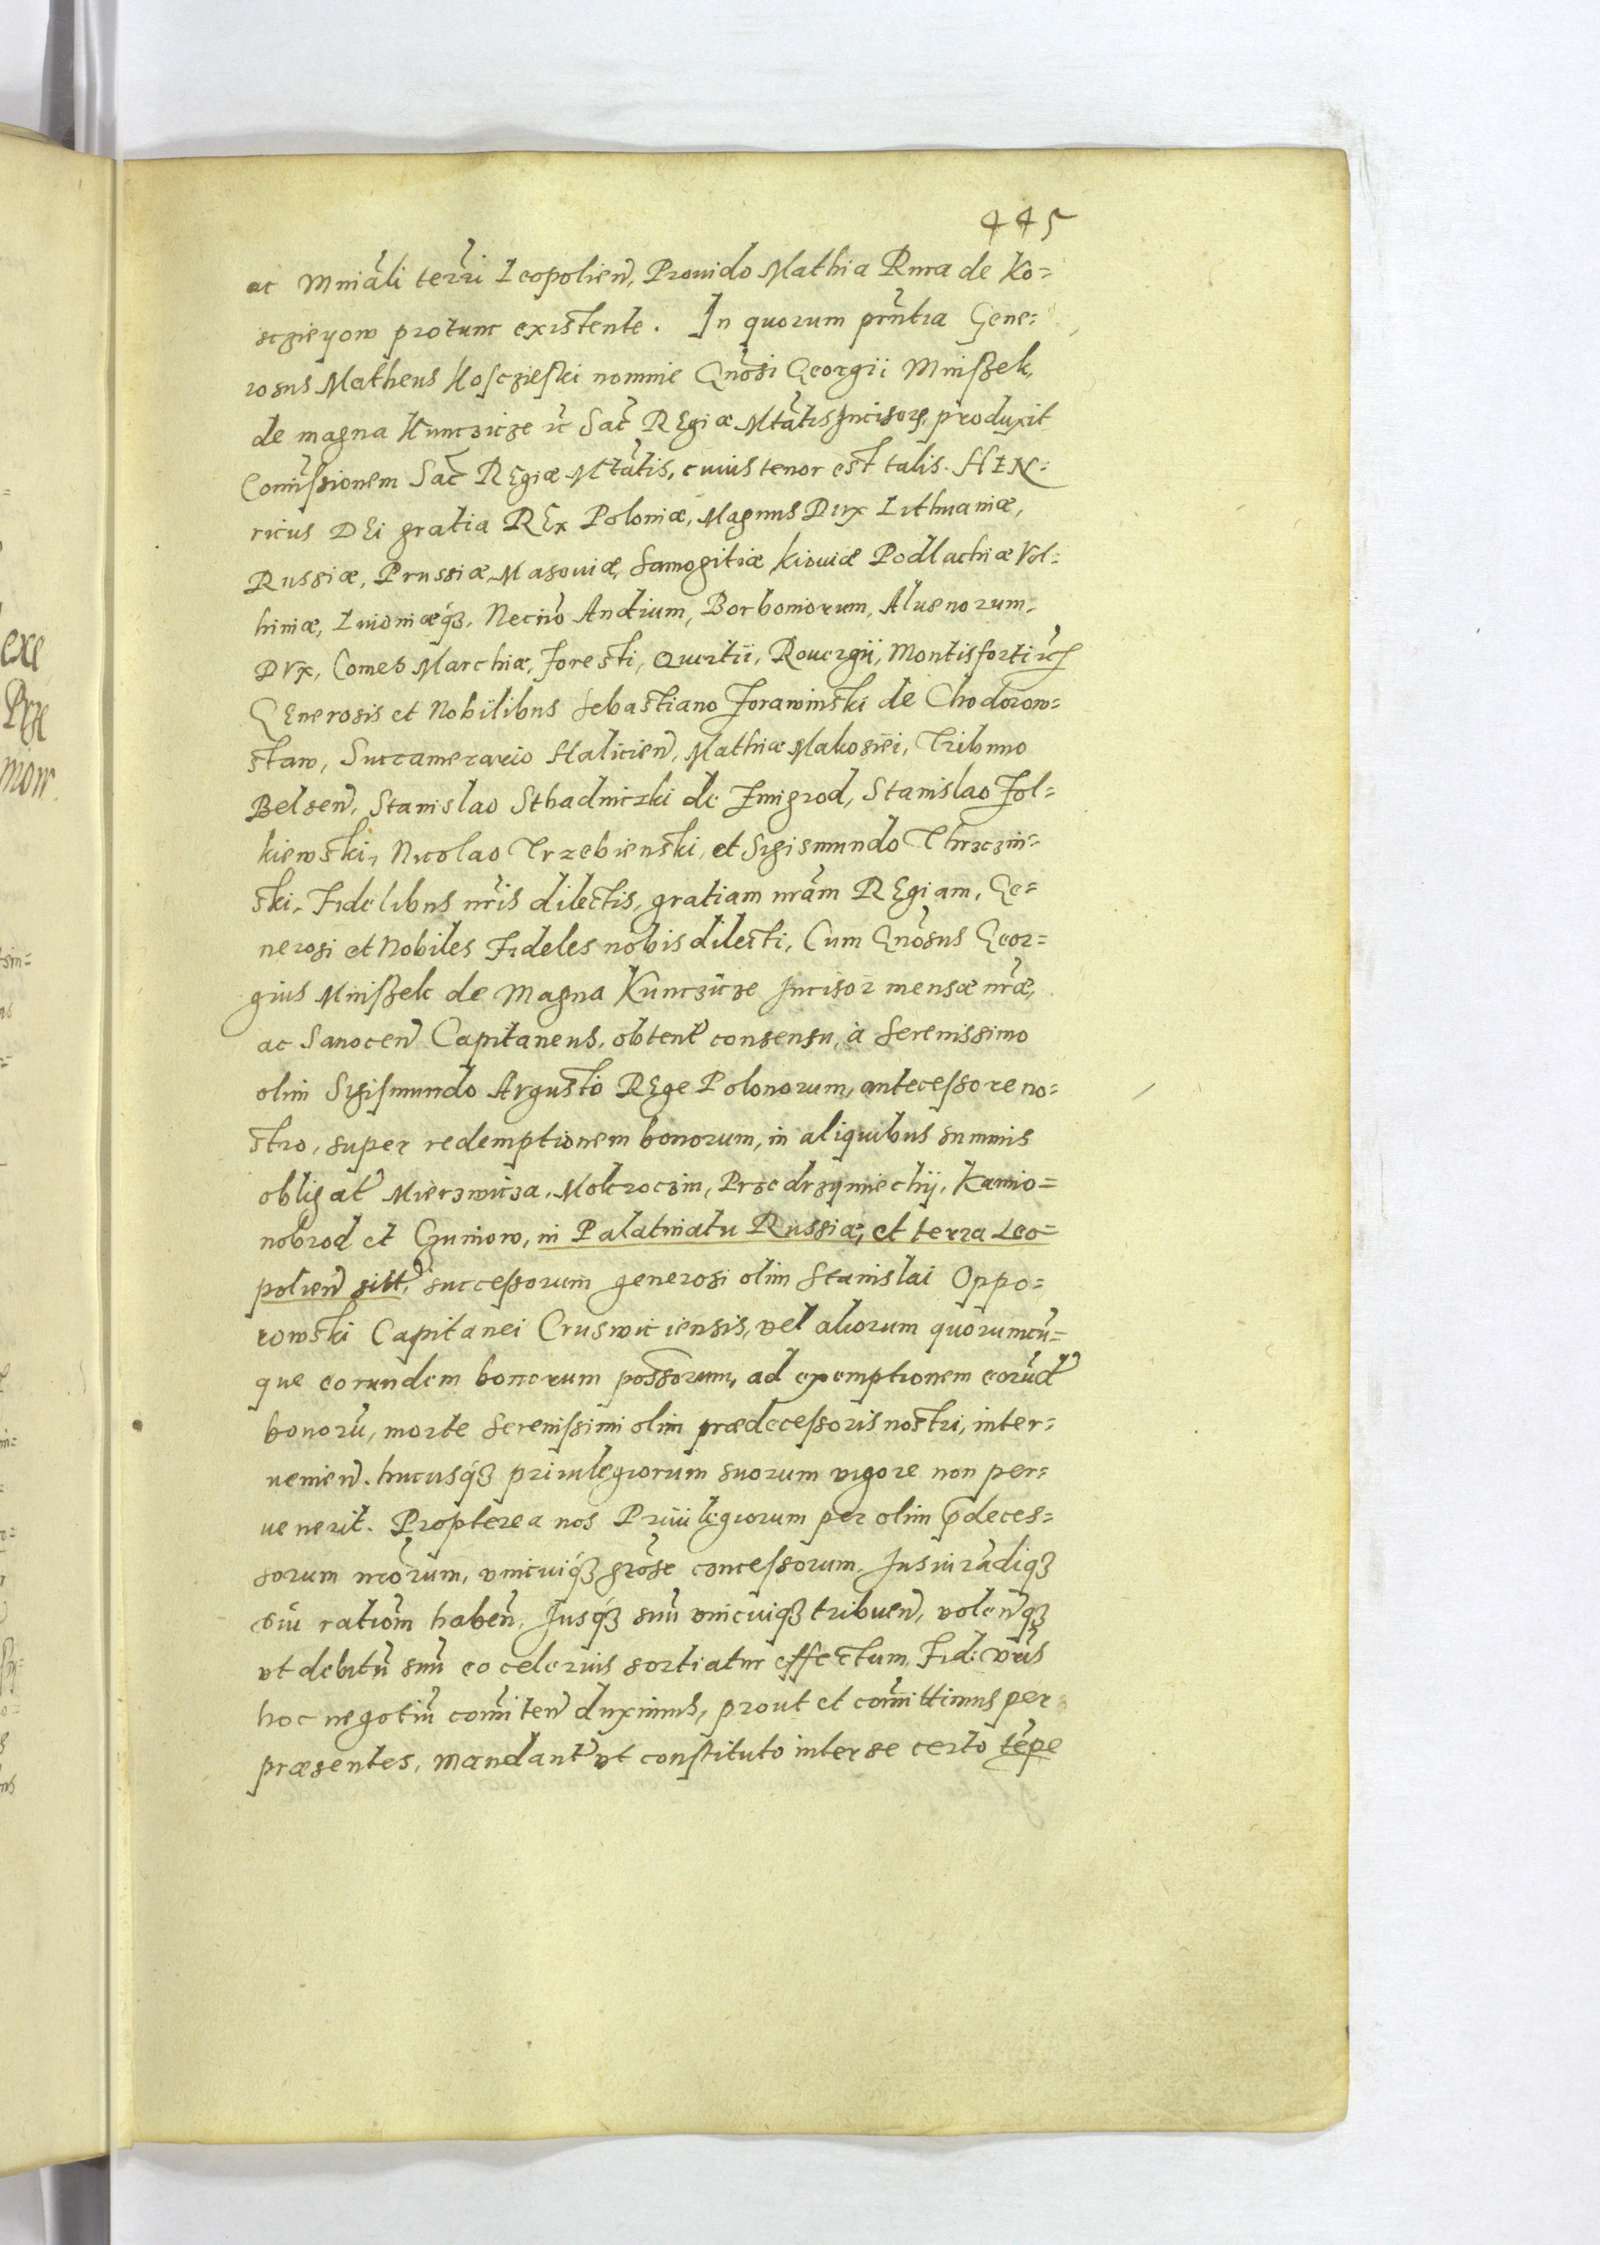 445
ac Mniãli terri Leopolien, Prouido Mathia Rura de Ko=
sczieyow protunc existente. In quorum prñtia Gene=
rosus Matheus Kosczieski nomine Gnõsi Georgii Mnißek,
de magna Kunczicze ic Sac REgiæ Mtãtis Incisoris, produxit
Comißionem Sac REgiæ Mtãtis, cuius tenor est talis. HEN=
ricus DEi gratia REx Poloniæ, Magnus Dux Lithuaniæ,
Russiæ, Prussiæ, Masouiæ, Samogitiæ Kiouiæ Podlachiæ Vol=
hiniæ, Liuoniæqȝ. Necnõ Andium, Borboniorum, Aluenorum
DVx, Comes Marchiæ, Foresti, Quertii, Rouergii, Montisforti ic
GEnerosis et Nobilibus Sebastiano Zorawinski de Chodorow=
staw, Succamerario Halicien, Mathiæ Makosiei, Tribuno
Belsen, Stanislao Sthadniczki de Zmigrod, Stanislao Zol=
kiewski, Nicolao Trzebienski, et Sigismundo Thrczin=
ski, Fidelibus nris dilectis, gratiam nrãm REgiam, Ge=
nerosi et Nobiles Fideles nobis dilecti, Cum Gnõsus Geor=
gius Mnißek de Magna Kunczicze Incisor mensæ nræ,
ac Sanocen Capitaneus, obtent consensu, à Serenissimo
olim Sigismundo Avgusto REge Polonorum, anteceßore no=
stro, super redemptionem bonorum, in aliquibus summis
obligat Mierzwicza, Mokroczin, Przedrzymiechij, Kamio=
nobrod et Czuniow, in Palatinatu Russiæ, et terra Leo=
polien sitt, succeßorum generosi olim Stanislai Oppo=
rowski Capitanei Cruswiciensis, vel aliorum quorumcũ=
que eorundem bonorum poßorum, ad exemptionem eorũd
bonorũ, morte Sereniſsimi olim prædeceßoris nostri, inter=
uenien. hucusqȝ priuilegiorum suorum vigore non per=
uenerit. Propterea nos Priuilegiorum per olim p̃deces=
sorum nrõrum, vnicuiqȝ grõse conceßorum. Iusiurãdiqȝ
sui ratiom haben. Iusqȝ suũ vnicuiqȝ tribuen, volenqȝ
vt debitũ suũ eo celerius sortiatur effectum, Fid: vris
hoc negotiũ comiten duximus, prout et comittimus per
præsentes, mandant vt constituto inter se certo tẽpe